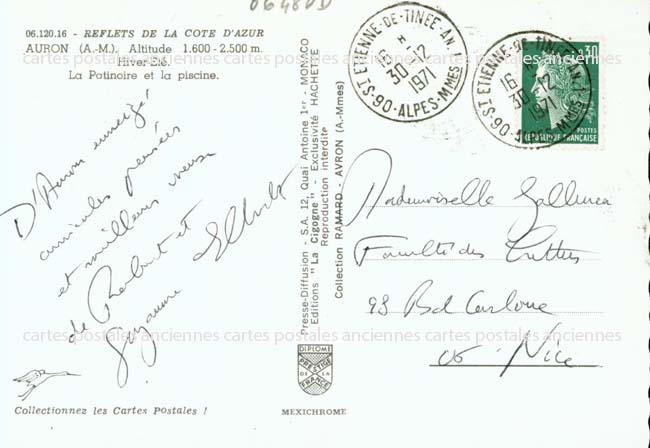 06480D
06.120.16 - REFLETS DE LA COTE D'AZUR
AURON (A.-M.). Altitude 1.600 - 2.500 m.
Hiver-Eté.
La Patinoire et la piscine.
D'Auron enneigé
amicales pensées
et meilleurs voeux
de Robert et
Suzanne
Collectionnez les Cartes Postales !
Presse-Diffusion - S.A. 12, Quai Antoine 1er - MONACO
Editions "La Cigogne" - Exclusivité HACHETTE
Reproduction interdite
Collection RAMARD - AVRON (A.-Mmes)
DIPLOME
PRESTIGE
DE LA
FRANCE
MEXICHROME
ST ETIENNE-DE-TINEE-AN.1
16 H
30-12
1971
06-ALPES-MMES
ST ETIENNE-DE-TINEE-AN.1
16 H
30-12
1971
06-
MMES
0,30
POSTES
REPUBLIQUE FRANÇAISE
Mademoiselle
Faculté des Lettres
98 Bd
06 - Nice
cartes postales anciennes cartes postales anciennes cartes postales anciennes
cartes postales anciennes cartes postales anciennes cartes postales anciennes